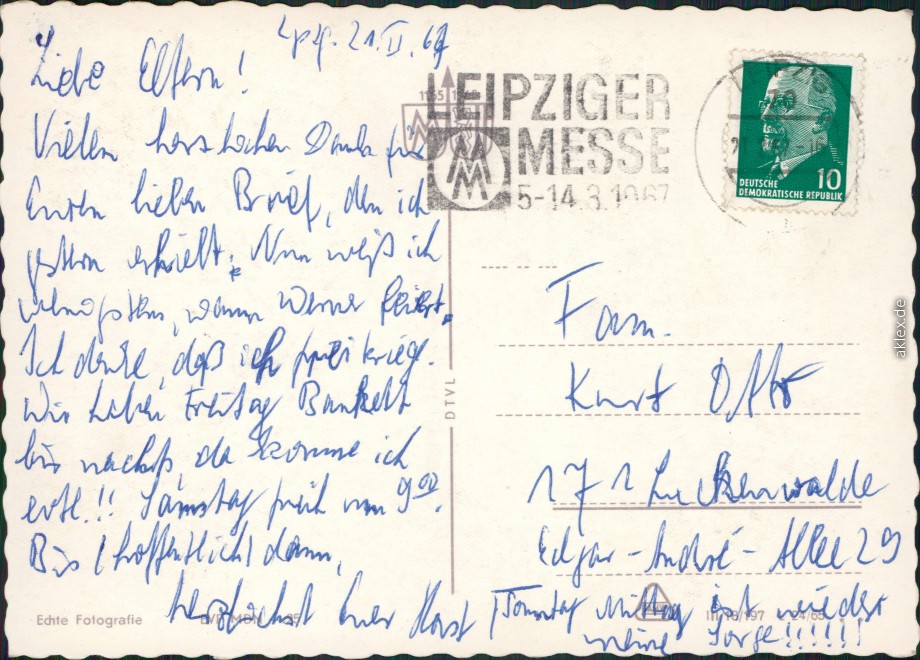 Lpzg. 21. II. 67
Liebe Eltern!
Vielen herzlichen Dank für
Euren lieben Brief, den ich
gestern erhielt. Nun weiß ich
wenigstens, wann Werner feiert.
Ich denke, daß ich frei kriege.
Wir haben Freitag Bankett
bis nachts, da komme ich
evtl.!! Samstag früh um 9⁰⁰.
Bis (hoffentlich) dann,
herzlichst Euer Horst
(Sonntag Mittag ist wieder
meine Sorge!!!!!!
LEIPZIGER
MESSE
5-14.3.1967
1165
MM
DEUTSCHE
DEMOKRATISCHE REPUBLIK
10
Fam.
Kurt Otto
171 Luckenwalde
Edgar-André-Allee 29
DTVL
Echte Fotografie
III/18/197
aklex.de